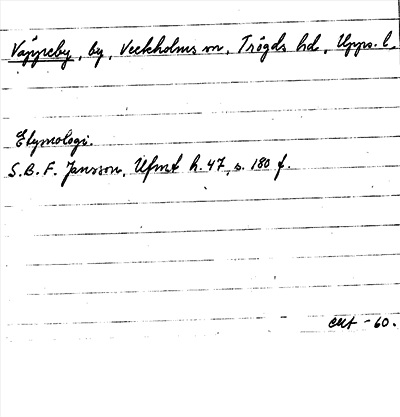 Väppeby, by, Veckholms sn, Trögds hd, Upps. l.
Etymologi.
S.B.F. Jansson, Ufmt h. 47, s. 180 f.
-60.